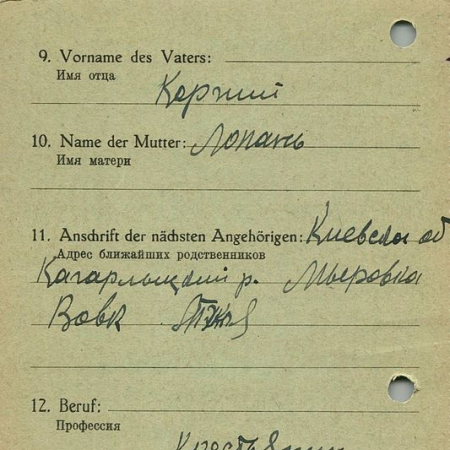 9. Vorname des Vaters:
Имя отца
Корний
10. Name der Mutter: Лопань
Имя матери
11. Anschrift der nächsten Angehörigen: Киевская об
Адрес ближайших родственников
Кагарлыцкий р. Мыровка
Вовк
12. Beruf:
Профессия